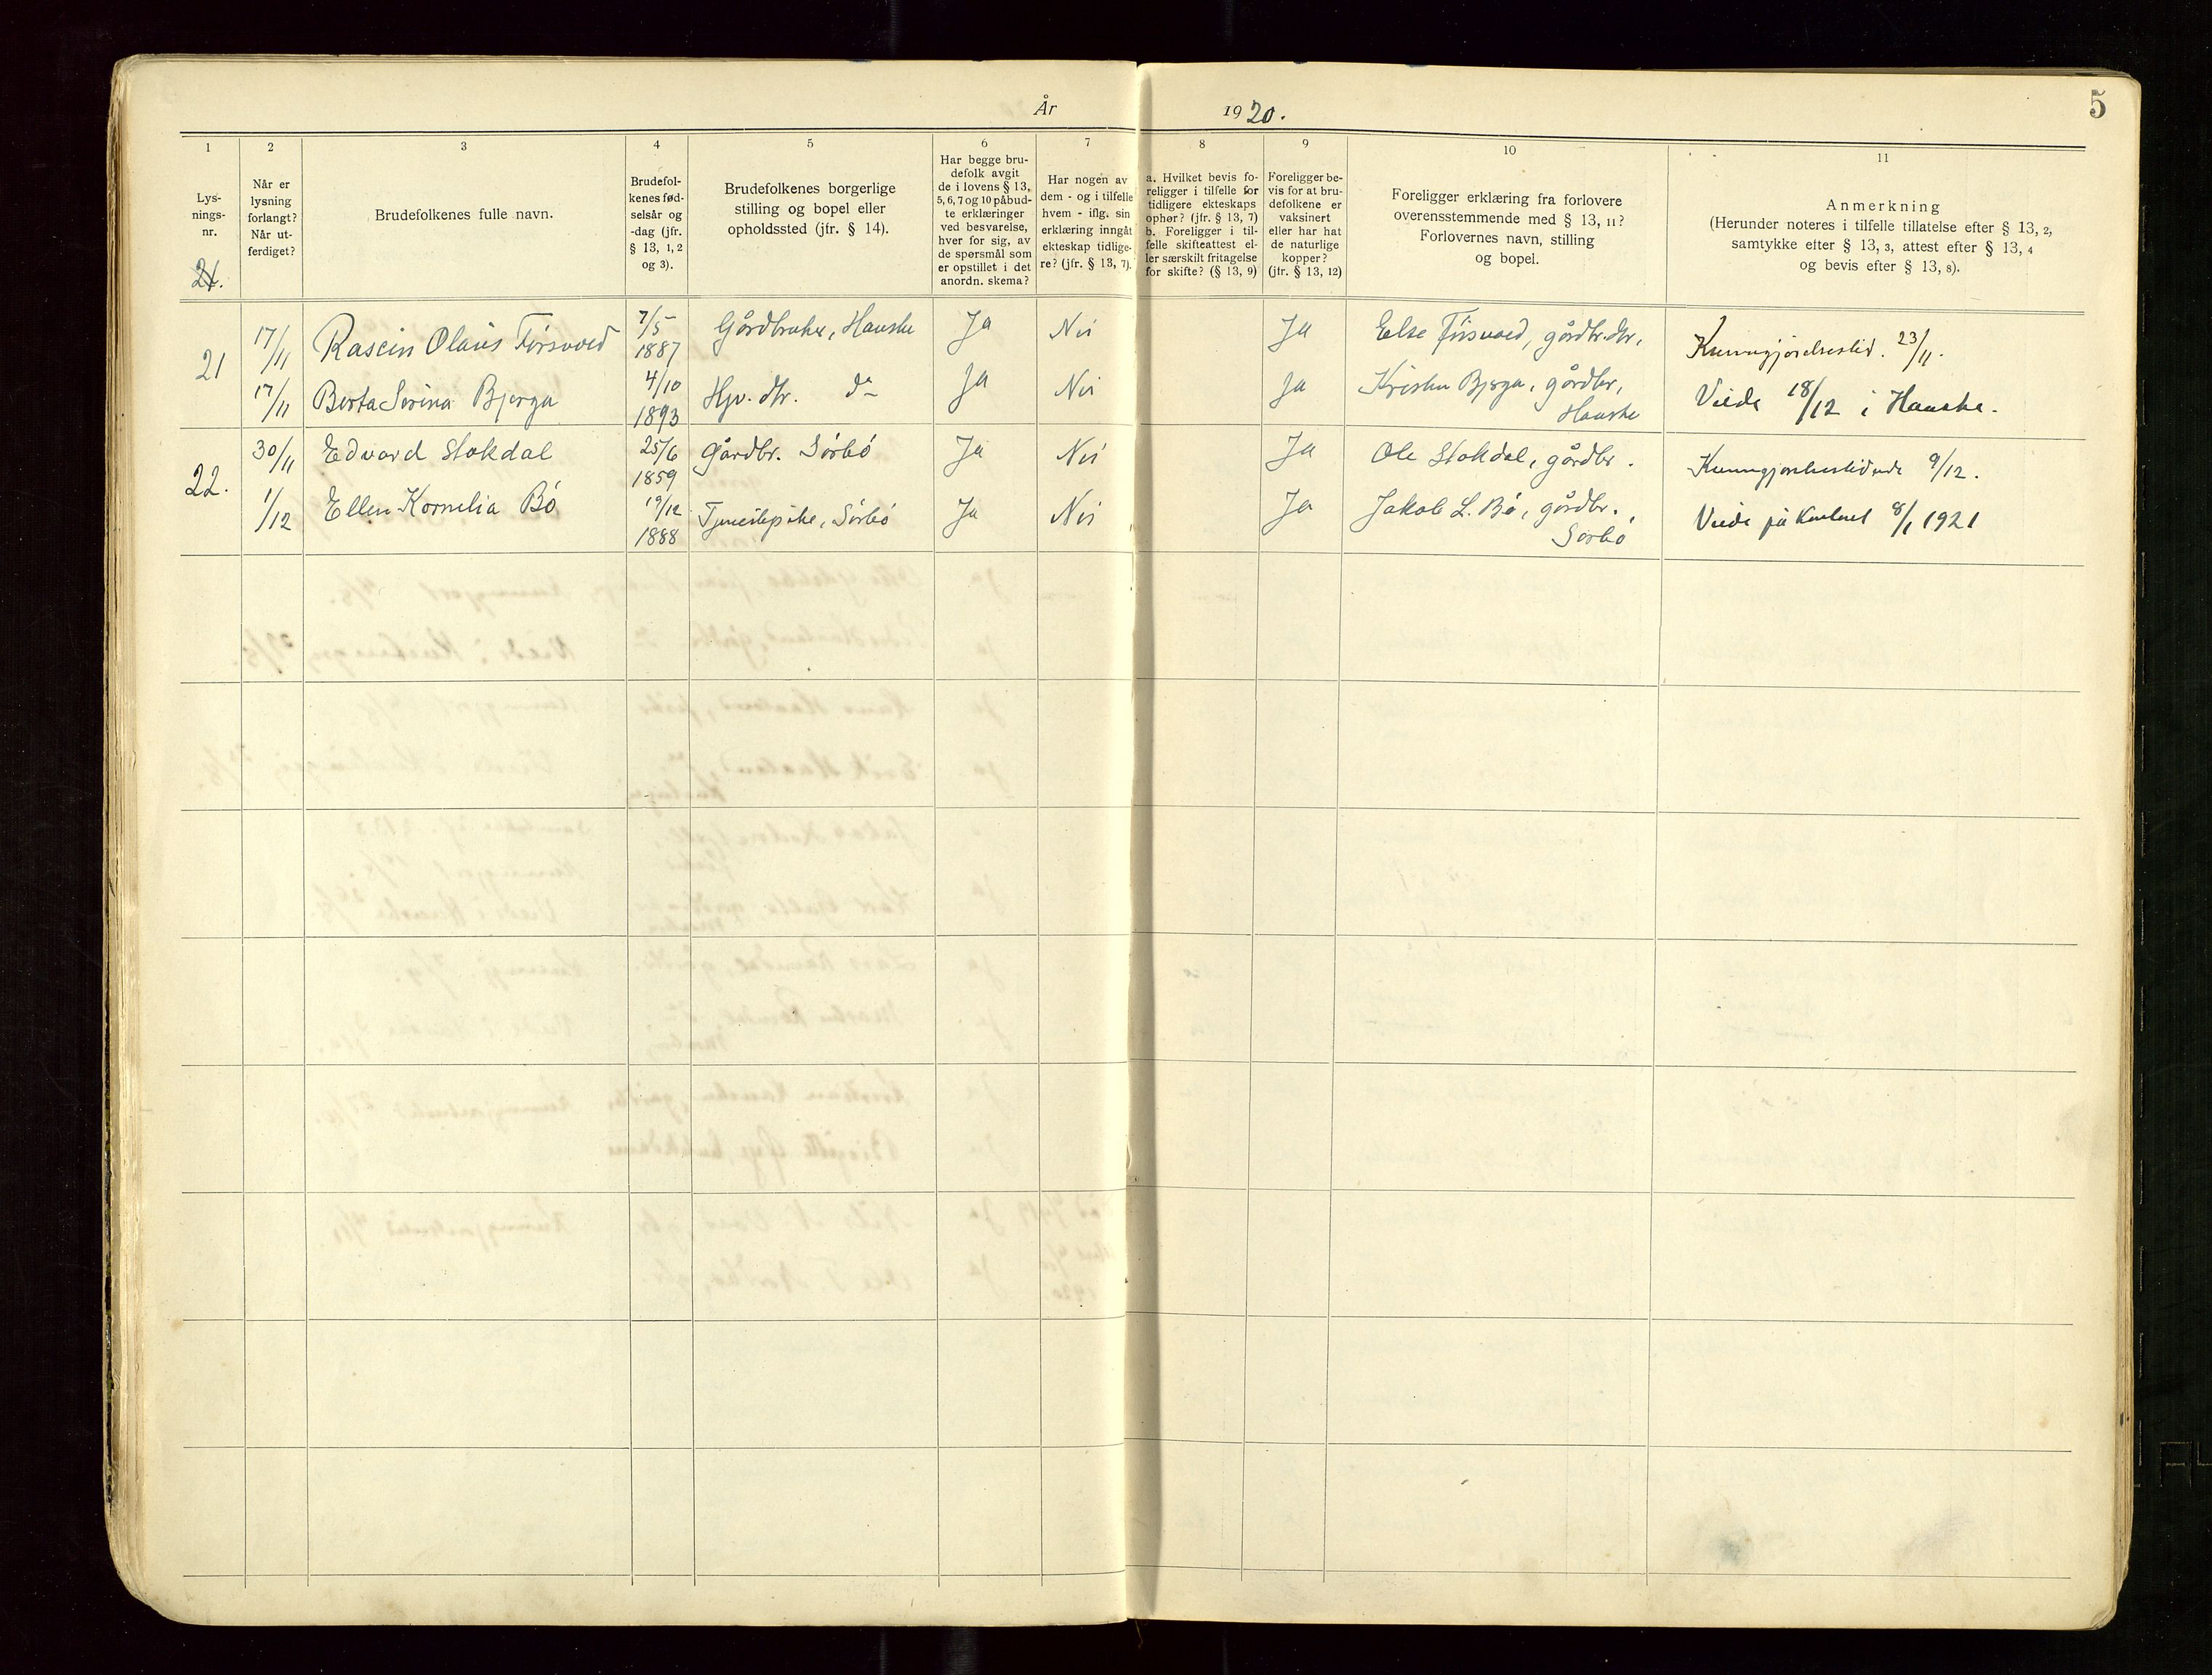 År 1920.
5
1
Lys-
nings-
nr.
21.
2
Når er
lysning
forlangt?
Når ut-
ferdiget?
3
Brudefolkenes fulle navn.
4
Brudefol-
kenes fød-
selsår og
-dag (jfr.
§ 13, 1, 2
og 3).
5
Brudefolkenes borgerlige
stilling og bopel eller
opholdssted (jfr. § 14).
6
Har begge bru-
defolk avgit
de i lovens § 13,
5, 6, 7 og 10 påbud-
te erklæringer
ved besvarelse,
hver for sig, av
de spørsmål som
er opstillet i det
anordn. skema?
7
Har nogen av
dem - og i tilfelle
hvem - iflg. sin
erklæring inngåt
ekteskap tidlige-
re? (jfr. § 13, 7).
8
a. Hvilket bevis fo-
religger i tilfelle for
tidligere ekteskaps
ophør? (jfr. § 13, 7)
b. Foreligger i til-
felle skifteattest el-
ler særskilt fritagelse
for skifte? (§ 13, 9)
9
Foreligger be-
vis for at bru-
defolkene er
vaksinert
eller har hat
de naturlige
kopper?
(jfr. § 13, 12)
10
Foreligger erklæring fra forlovere
overensstemmende med § 13, 11?
Forlovernes navn, stilling
og bopel.
11
Anmerkning
(Herunder noteres i tilfelle tillatelse efter § 13, 2,
samtykke efter § 13, 3, attest efter § 13, 4
og bevis efter § 13, 8).
21
17/11 Rasein OlausFørsvoed 7/5 1887 Gårdbruker, Hauske Ja Nei Ja Else Førsvoed, gårdbr.dtr. Kunngjørelsestid. 23/11.
17/11 Berta Serina Bjerga 4/10 1893 Hjv. dtr. do Ja Nei Ja Kristen Bjerga, gårdbr, Hauske Viede 18/12 i Hauske.
22.
30/11 Edvard Stokdal 25/6 1859 Gårdbr. Sørbø Ja Nei Ja Ole Stokdal, gårdbr. 9/12.
1/12 Ellen Kornelia Bø 19/12 1888 Tjenestepike, Sørbø Ja Nei Ja Jakob L. Bø, gårdbr. Sørbø Viede på Kontoret 8/1 1921